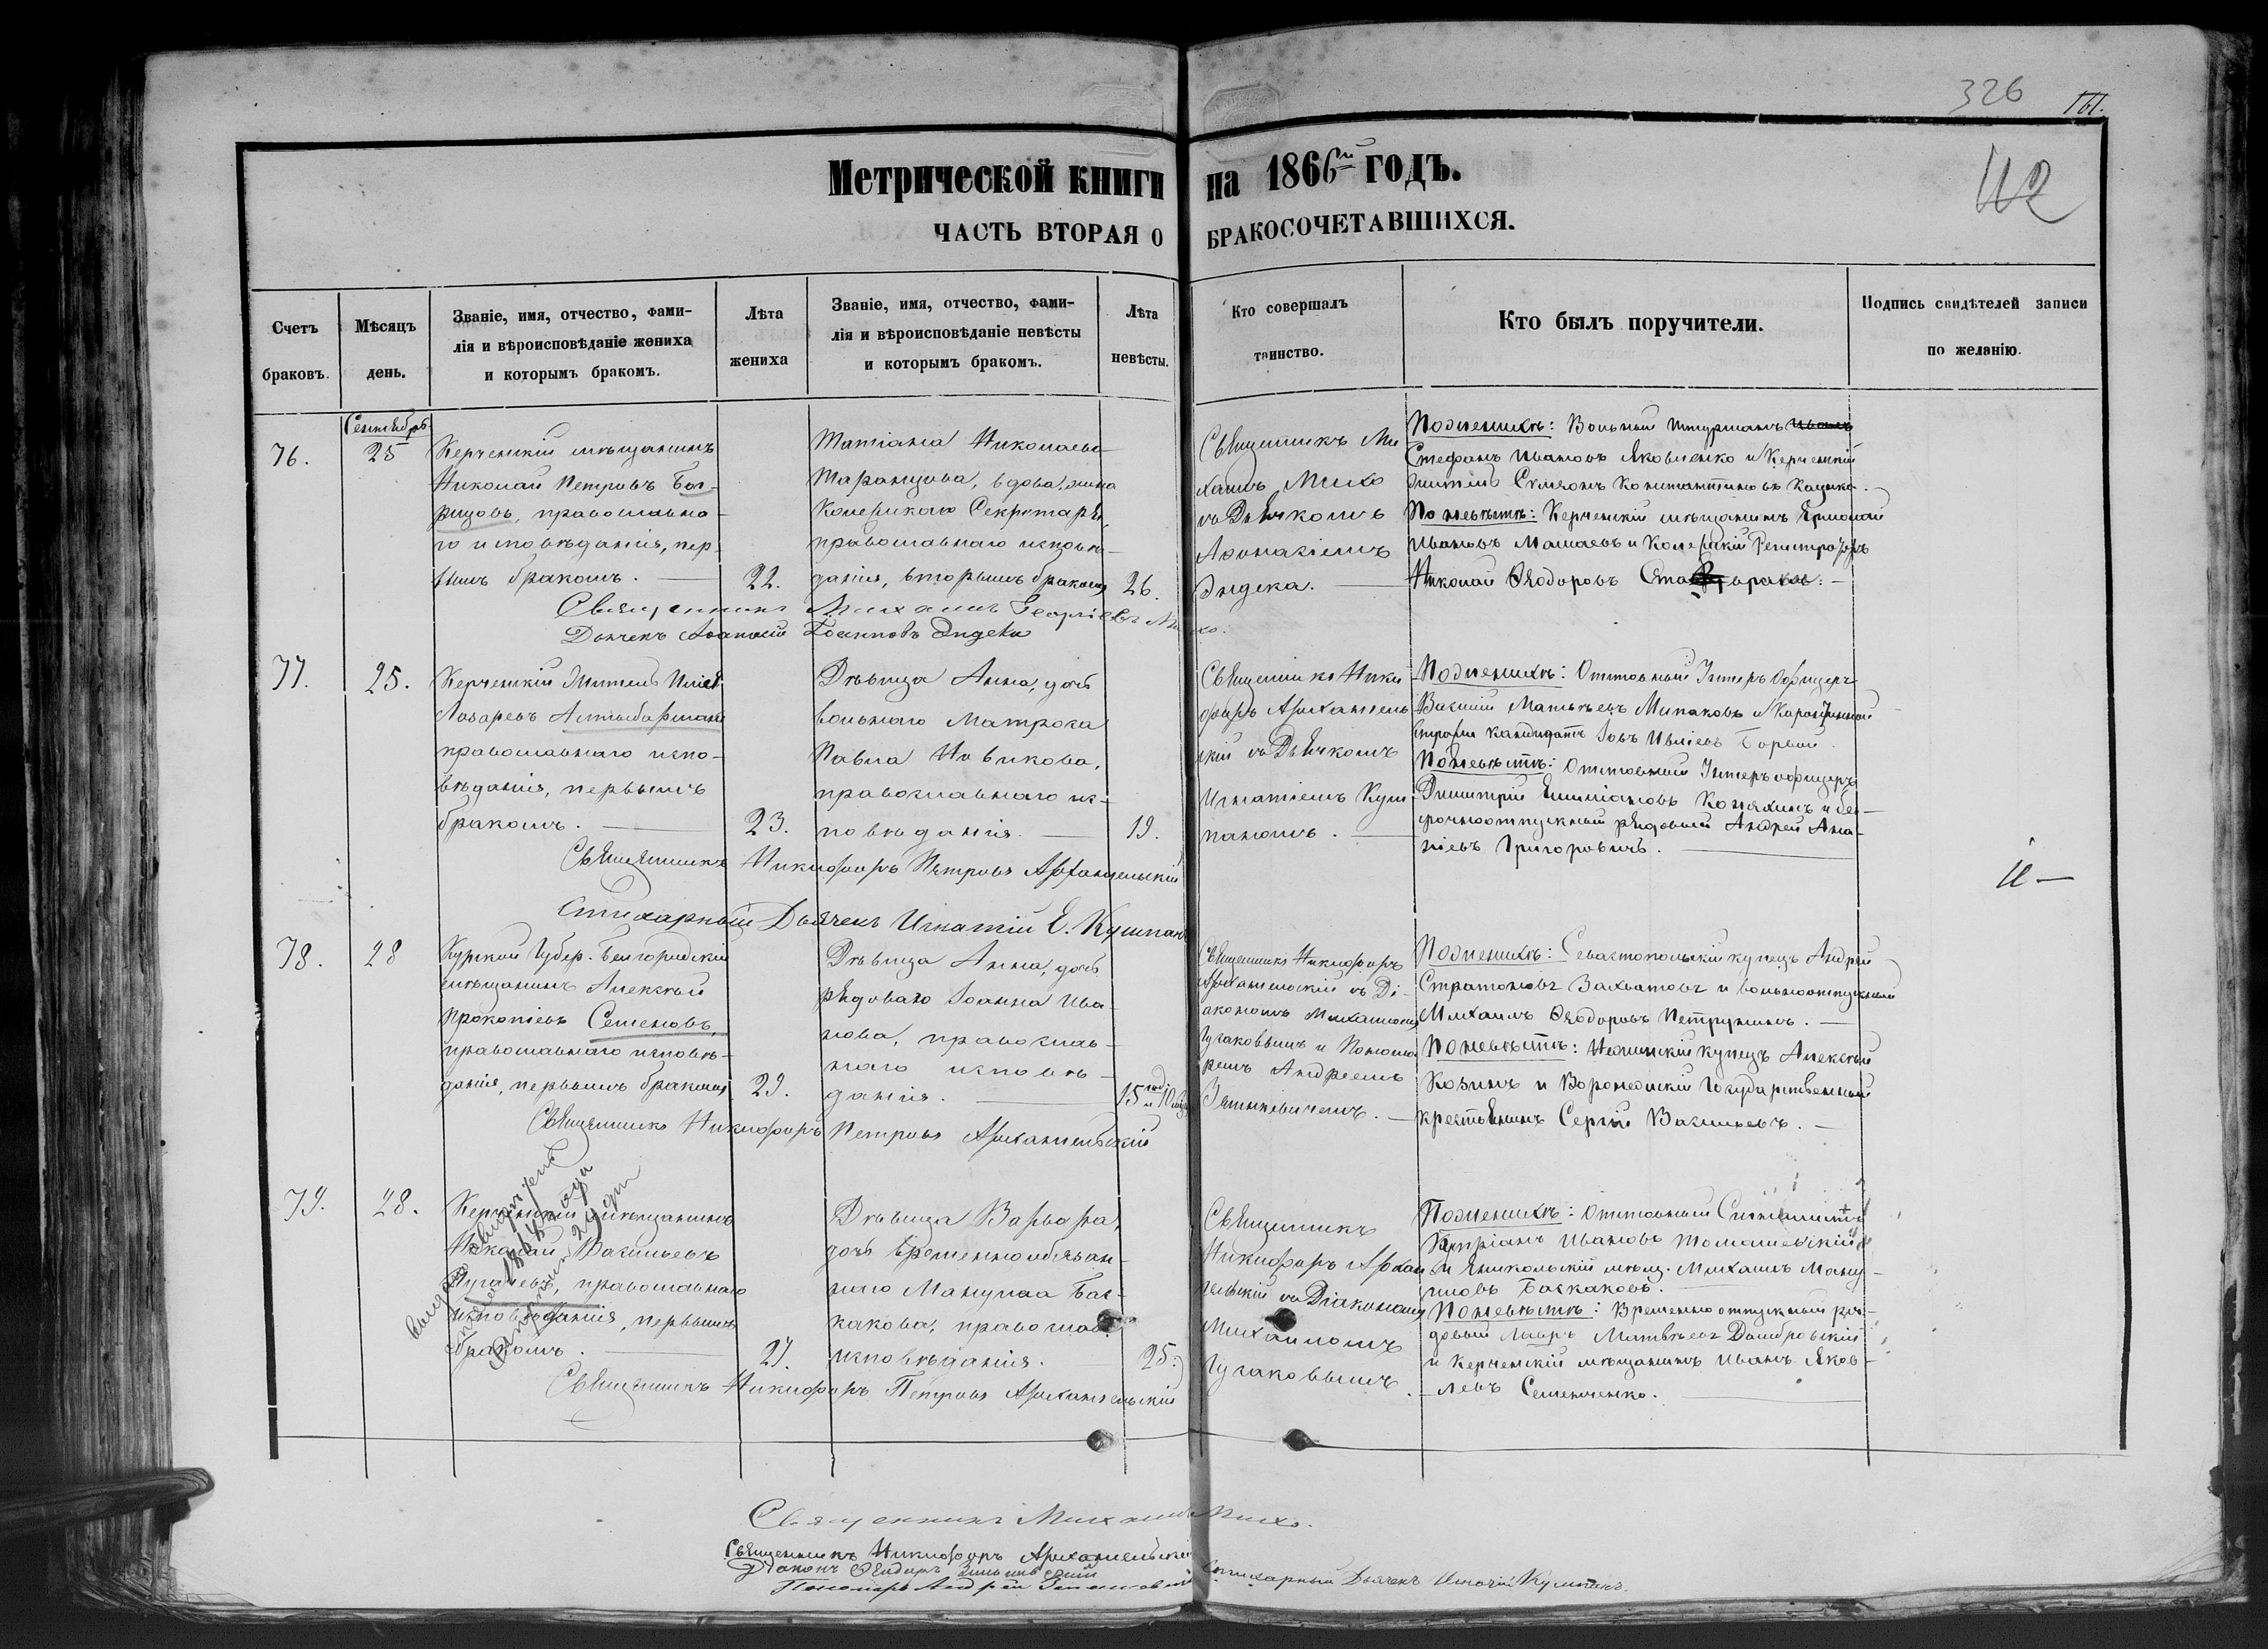 326
161.
112
Метрической книги на 1866й годъ.
ЧАСТЬ ВТОРАЯ О БРАКОСОЧЕТАВШИХСЯ.
Счетъ браковъ.
Мѣсяцъ день.
Званіе, имя, отчество, фами-
лія и вѣроисповѣданіе жениха
и которымъ бракомъ.
Лѣта жениха
Званіе, имя, отчество, фами-
лія и вѣроисповѣданіе невѣсты
и которымъ бракомъ.
Лѣта невѣсты.
Кто совершалъ
таинство.
Кто былъ поручители.
Подпись свидѣтелей записи
по желанію.
76.
Сентябрь
25
Керченскій мѣщанинъ
Николай Петровъ
православна-
го исповѣданія, пер-
вымъ бракомъ.
22.
Татіана Николаева
Таранцова, вдова, жена
Колежскаго Секретаря,
православнаго исповѣ-
данія, вторымъ бракомъ
26.
Священникъ Ми
хаилъ Михо
съ Дьячкомъ
Афонасіемъ
Эндека.
Поженихѣ: Вольный штурманъ
Стефанъ Ивановъ Яковленко и Керченскій
житель Симеонъ Константиновъ
По невѣстѣ: Керченскій мѣщанинъ Ермолай
Ивановъ Машаевъ и Колежскій Регистраторъ
Николай Ѳеодоровъ
Священникъ Михаилъ Георгіевъ Михо.
Дьячекъ Афанасій Іоанновъ Эндека
77.
25.
Керченскій Житель Илія
Лазаревъ
православнаго испо-
вѣданія, первымъ
бракомъ.
23.
Дѣвица Анна, дочь
вольнаго матроса
Павла Новикова,
православнаго ис-
повѣданія.
19.
Священникъ Ники
форъ Архангель
скій съ Дьячкомъ
Игнатіемъ Куш
паномъ.
Поженихѣ: Отставный Унтеръ Офицеръ
Василій Матвѣевъ Минаковъ и Карантинной
стражи кандидатъ Іовъ
По невѣстѣ: Отставный Унтеръ офицеръ
Димитрій Емиліановъ и без-
срочноотпускный рядовый Андрей Ана-
ніевъ Григоровичъ.
Священникъ Никифоръ Петровъ Архангельскій
Стихарный Дьячекъ Игнатій Е. Кушпанъ
78.
28
Курской Губер. Белгородскій
мѣщанинъ Алексѣй
Прокопіевъ Семеновъ,
православнаго исповѣ-
данія, первымъ бракомъ
29.
Дѣвица Анна, дочь
рядоваго Іоанна Ива-
нова, православ-
наго исповѣ-
данія.
15
Священникъ Никифоръ
Архангельскій съ Ді-
акономъ Михаиломъ
Чугаковымъ и Понома-
ремъ Андреемъ
Поженихѣ: Севастопольскій купецъ Андрей
Стратоновъ Захватовъ и вольноотпускный
Михаилъ Ѳеодоровъ Петрунинъ.
По невѣстѣ: Нежинскій купецъ Алексѣй
Козинъ и Воронежскій Государственный
крестьянинъ Сергій Васильевъ.
Священникъ Никифоръ Петровъ Архангельскій
79.
28.
Керченскій мѣщанинъ
Николай Васильевъ
православнаго
исповѣданія, первымъ
бракомъ.
21.
Дѣвица Варвара,
дочь временнообязан-
наго Мануила Бас-
какова, правосл.
исповѣданія.
25.
Священникъ
Никифоръ Архан
гельскій съ Діакономъ
Михаиломъ
Чугаковымъ.
Поженихѣ: Отставный
Кипріанъ Ивановъ Томашевскій
и Еникольскій мѣщ. Михаилъ Мануи-
ловъ Баскаковъ.
По невѣстѣ: Временно отпускный ря-
довый Лавръ Матвѣевъ Домбровскій
и Керченскій мѣщанинъ Иванъ Яков-
левъ Семенченко.
Священникъ Никифоръ Петровъ Архангельскій
Священникъ Михаилъ Михо.
Священникъ Никифоръ Архангельскій
Пономарь Андрей
Стихарный Дьячекъ Игнатій Кушпанъ.